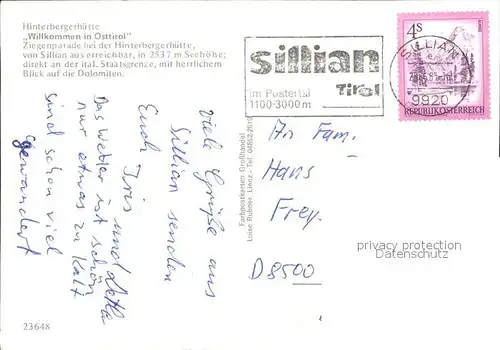 Hinterbergerhütte
„Willkommen in Osttirol"
Ziegenparade bei der Hinterbergerhütte,
von Sillian aus erreichbar, in 2537 m Seehöhe;
direkt an der ital. Staatsgrenze, mit herrlichem
Blick auf die Dolomiten.
sillian
Tirol
im Pustertal
1100-3000 m
4 S
SILLIAN
9920
REPUBLIK ÖSTERREICH
Viele Grüße aus
Sillian senden
Euch Iris und
Das Wetter ist schön
nur etwas zu kalt
sind schon viel
gewandert
Farbpostkarten Großhandel
Luise Rubner, Lienz - Tel.
An Fam.
Hans
Frey.
D 8500
privacy protection
Datenschutz
23648